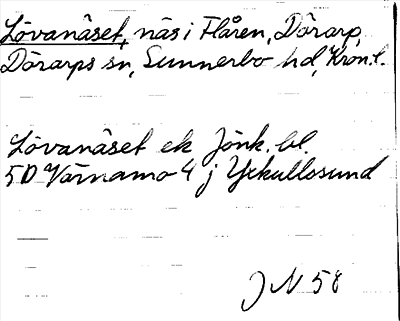 Lövanäset, näs i Flåren, Dörarp,
Dörarps sn, Sunnerbo hd, Kron. l.
Lövanäset ek Jönk. bl.
5D Värnamo 4 j Yxkullssund
J N 58